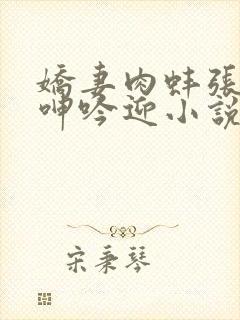 嬌妻肉蚌張
呻吟迎小說
宋秉琴